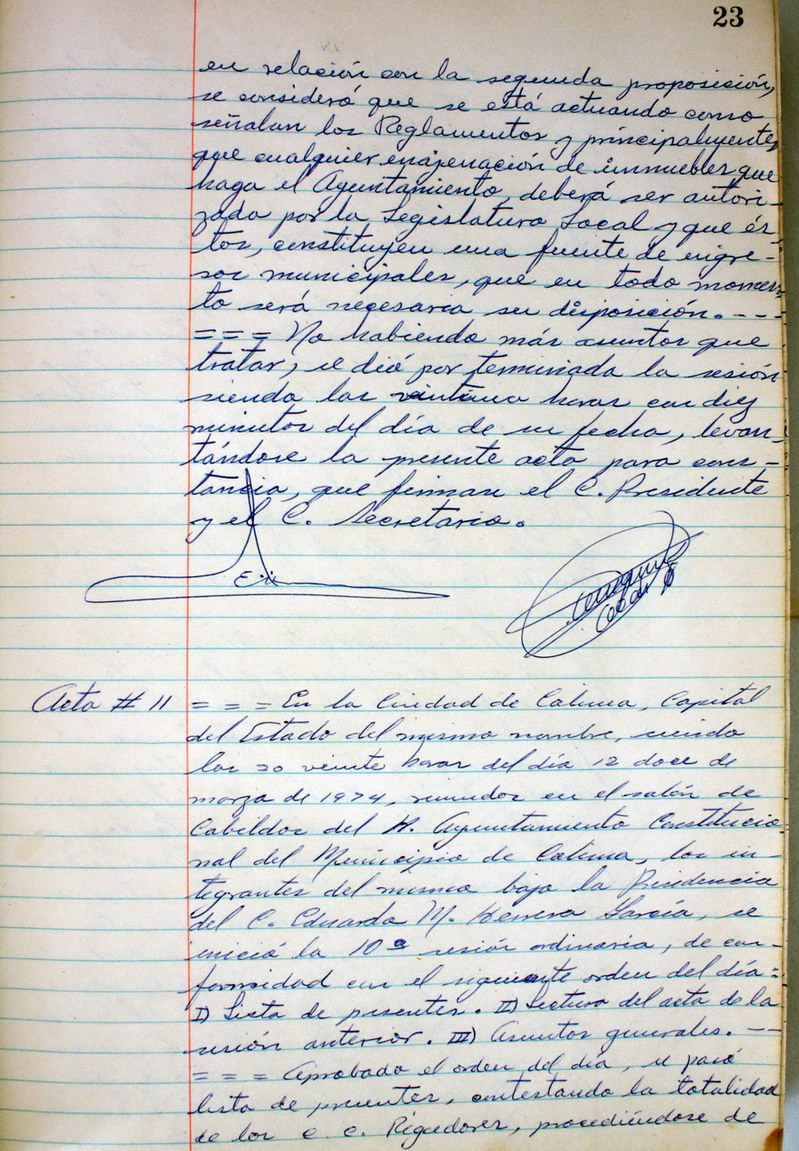 23
en relación con la segunda proposición,
se consideró que se está actuando como
señalan los Reglamentos y principalmente,
que cualquier enajenación de inmuebles que
haga el Ayuntamiento, deberá ser autori-
zada por la Legislatura Local y que és-
tos, constituyen una fuente de ingre-
sos municipales, que en todo momen-
to será necesaria su disposición. - - -
= = = No habiendo más asuntos que
tratar, se dió por terminada la sesión
siendo las veintiuna horas con diez
minutos del día de su fecha, levan-
tándose la presente acta para cons-
tancia, que firman el C. Presidente
y el C. Secretario.
Acta # 11 = = = En la Ciudad de Colima, Capital
del Estado del mismo nombre, siendo
las 20 veinte horas del día 12 doce de
marzo de 1974, reunidos en el salón de
Cabildos del H. Ayuntamiento Constitucio-
nal del Municipio de Colima, los in-
tegrantes del mismo bajo la Presidencia
del C. Eduardo M. Herrera García, se
inició la 10ª sesión ordinaria, de con-
formidad con el siguiente orden del día:
I) Lista de presentes. II) Lectura del acta de la
sesión anterior. III) Asuntos generales. - -
= = = Aprobado el orden del día, se pasó
lista de presentes, contestando la totalidad
de los C. C. Regidores, procediéndose de